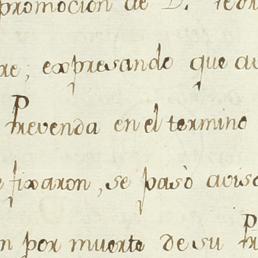 promocion de D.
re; expresando que
Prevenda en el termino
fixaron, se pasò aviso
n por muerte de su